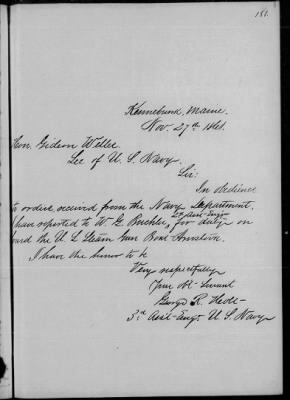 181.
Kennebunk, Maine.
Nov. 27th 1861.
Hon. Gideon Welles
Sec of U. S. Navy.
Sir:
In obedience
to orders, received from the Navy Department,
I have reported to W. G. Buehler, 1st Asst-Engr for duty on
board the U. S. Steam Gun Boat Aroostook.
I have the honor to be
Very respectfully
Your Ob- Servant
George R.
3rd Asst-Engr U. S. Navy